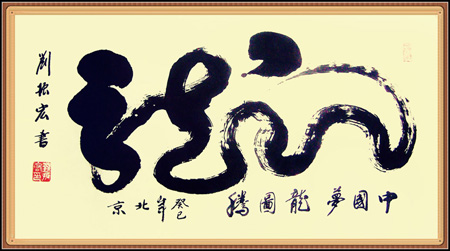 龍
中國夢龍圖騰
癸巳年北京
劉振宏書